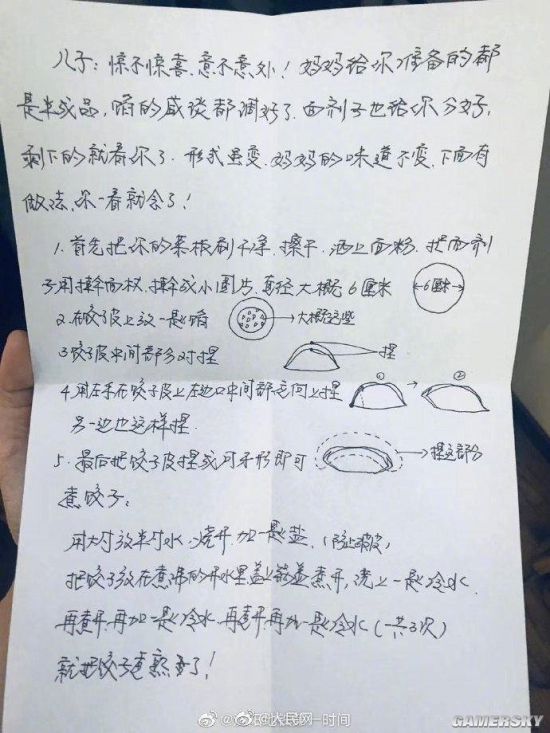 儿子：惊不惊喜，意不意外！妈妈给你准备的都
是半成品，馅的咸淡都调好了，面剂子也给你分好，
剩下的就看你了。形式虽变，妈妈的味道不变，下面有
做法，你一看就会了！
1. 首先把你的菜板刷干净，擦干，洒上面粉，把面剂
子用擀面杖，擀成小圆片，直径大概6厘米
←6厘米→
2. 在饺子皮上放一些馅
大概这些
3. 饺子皮中间部分对捏
捏
4. 用左手在饺子皮上左边口中间部位向上捏
① → ②
另一边也这样捏.
5. 最后把饺子皮捏成月牙形即可
捏这部分
煮饺子：
用大勺放半勺水，烧开，加一些盐，（防止破皮）
把饺子放在煮沸的开水里盖上锅盖煮开，浇上一些冷水.
再煮开再加一些冷水，再煮开再加一些冷水（一共3次）
就把饺子煮熟了！
@人民网一时间
GAMERSKY